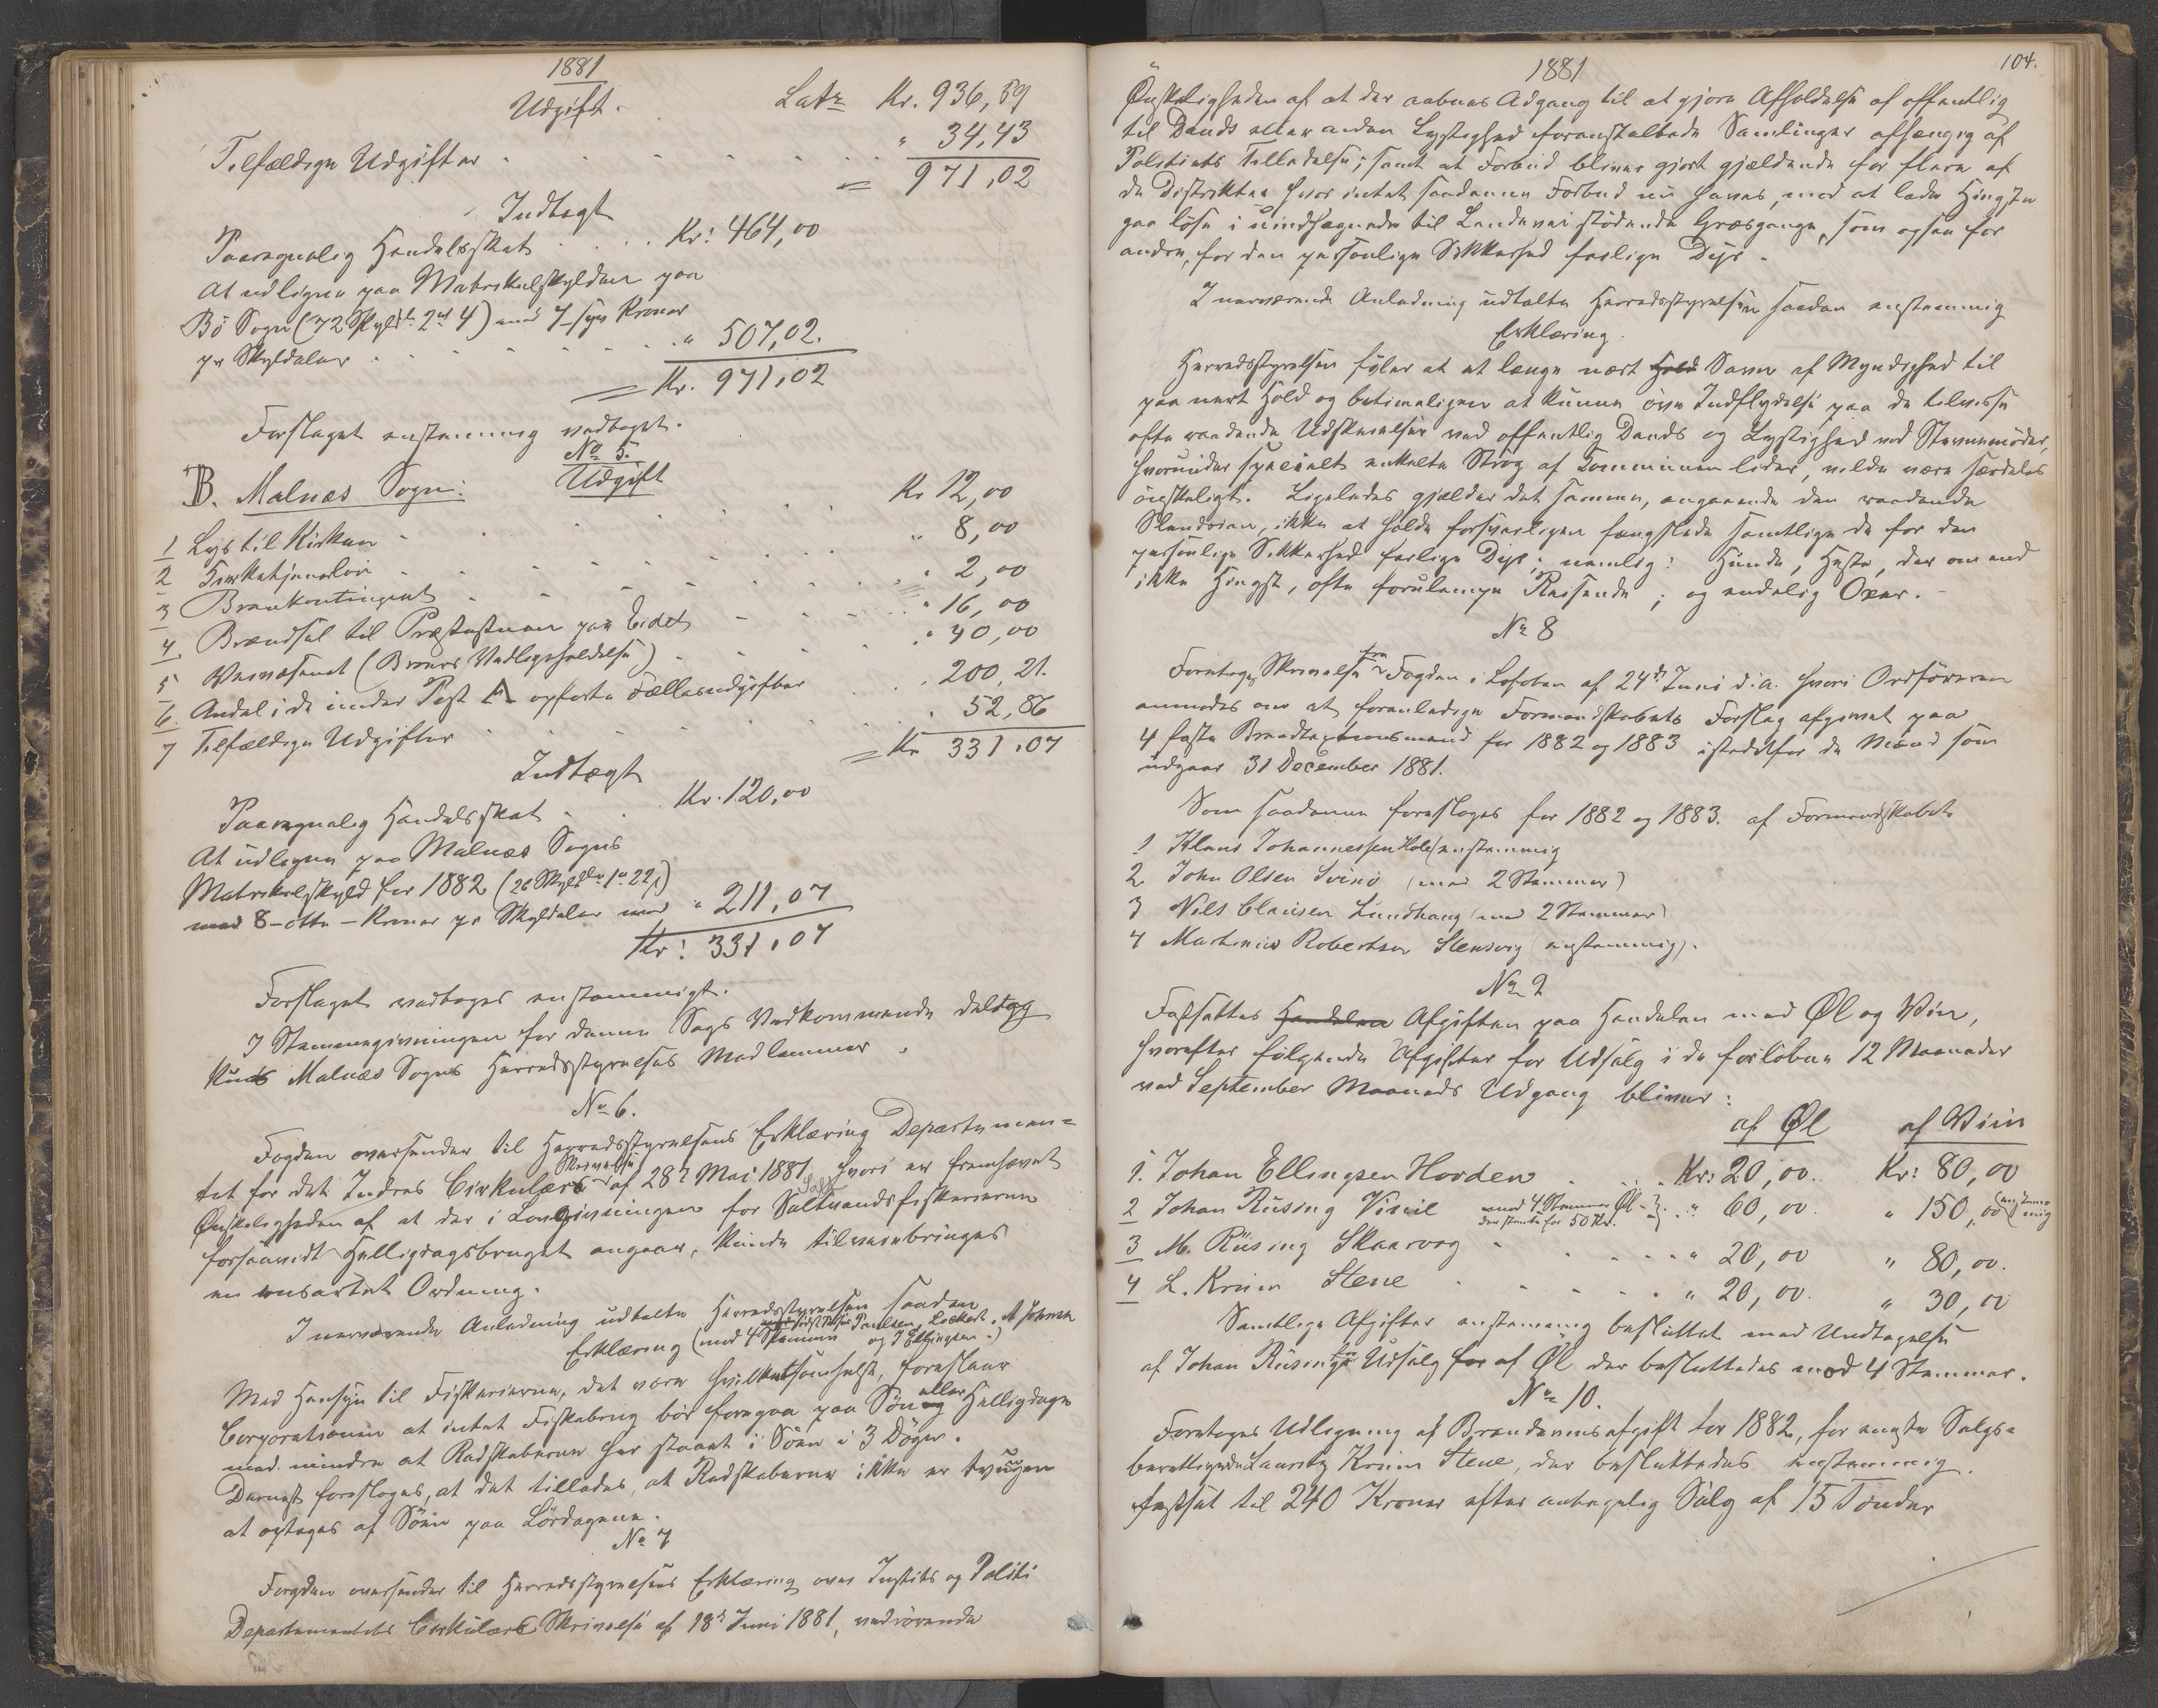 1881
Udgift.
Latr Kr. 936,59
Tilfældige Udgifter . . . . . . " 34,43
= 971,02
Indtægt
Paaregnelig Handelsskat . . . . Kr: 464,00
At udligne paa Matrikulskylden paa
Bö Sogn (72 Skyldr 2 ort 4) med 7 – syv Kroner
pr Skyldaler . . . . . . " 507,02.
= Kr. 971,02
Forslaget enstemmig vedtaget.
No 5.
B. Malnæs Sogn: Udgift
1 Lys til Kirken . . . . . Kr 12,00
2 Kirketjenerlön . . . . . " 8,00
3 Brankontingent . . . . . " 2,00
4. Brændsel til Præstestuen paa Eidet . . . " 16,00
5 Veivæsenet (Broers Vedligeholdelse) . . . " 40,00
6. Andel i de under Post A opførte Fællesudgifter . . . 200,21.
7 Tilfældige Udgifter . . . . . " 52,86
= Kr 331,07
Indtægt
Paaregnelig Handelsskat . . Kr. 120,00
At udligne paa Malnæs Sogns
Matrikulskyld for 1882 (26 Skyldr 1 o 22 s)
med 8 – otte – Kroner pr Skyldaler med " 211,07
Kr: 331,07
Forslaget vedtoges enstemmigt.
I Stemmegivningen for denne Sags Vedkommende deltog
kun Malnæs Sogns Herredsstyrelses Medlemmer.
No 6.
Fogden oversender til Herredsstyrelsens Erklæring Departemen=
tet for det Indres Cirkulære Skrivelse af 28de Mai 1881, hvori er fremhævet
Ønskeligheden af at der i Lovgivningen for Saltvandsfiskerierne
forsaavidt Helligdagsbruget angaar, kunde tilveiebringes
en ensartet Ordning.
I nærværende Anledning udtalte Herredsstyrelsen saadan
Erklæring (med 4 Stemmer Paulsen, Lockert, A Johnsen og J Ellingsen.)
Med Hensyn til Fiskerierne, det være hvilketsomhelst, foreslaar
Corporationen at intet Fiskebrug bör foregaa paa Sön eller Helligdage
med mindre at Redskaberne har staaet i Söen i 3 Døgn.
Dernæst foresloges, at det tillades, at Redskaberne ikke er tvungen
at optages af Söen paa Lördagene.
No 7
Fogden oversender til Herredsstyrelsens Erklæring over Justits og Politi
Departementets Cirkulære Skrivelse af 18de Juni 1881, vedrörende
104.
1881
Önskeligheden af at der aabnes Adgang til at gjöre Afholdelse af offentlig
til Dands eller anden Lystighed foranstaltede Samlinger afhængig af
Politiets Tilladelse; samt at Forbud bliver gjort gjældende for flere af
de Distrikter hvor intet saadanne Forbud nu haves, mod at lade Hingste
gaa löse i uindhegnede til Landevei stödende Græsgange, som ogsaa for
andre, for den personlige Sikkerhed farlige Dyr.
I nærværende Anledning udtalte Herredsstyrelsen saadan enstemmig
Erklæring.
Herredsstyrelsen föler at at længe nært Savn af Myndighed til
paa nært Hold og betimeligen at kunne öve Indflydelse paa de tilvisse
ofte raadende Udskeielser ved offentlig Dands og Lystighed ved Stevnemöder,
hvorunder specielt enkelte Strög af Kommunen lider, vilde være særdeles
önskeligt. Ligeledes gjælder det samme, angaaende den raadende
Slendrian, ikke at holde forsvarligen fængslede samtlige de for den
personlige Sikkerhed farlige Dyr; nemlig: Hunde, Heste, der om end
ikke Hingst, ofte forulempe Reisende; og endelig Oxer. –
No 8
Foretoges Skrivelse fra Fogden i Lofoten af 24de Juni d.a. hvori Ordföreren
anmodes om at foranledige Formandskabets Forslag afgivet paa
4 faste Brandtaxtionsmænd for 1882 og 1883 istedetfor de Mænd som
udgaar 31 December 1881.
Som saadanne foresloges for 1882 og 1883. af Formandskabet
1 Klaus Johannessen Hole (enstemmig
2 John Olsen Svinö (med 2 Stemmer)
3 Nils Clausen Lundhaug (med 2 Stemmer)
4 Martinius Robertsen Stensvig (enstemmig).
No 9
Fastsattes Handelen Afgiften paa Handelen med Øl og Vin,
hvorefter fölgende Afgifter for Udsalg i de forlöbne 12 Maaneder
ved September Maaneds Udgang bliver:
af Øl af Viin
1. Johan Ellingsen Hovden . . . Kr: 20,00. Kr: 80,00
2 Johan Rüsing Vinie med 4 Stemmer Øl. der stemte for 50 Kr. " 60,00. " 150,00 (enstemmig
3 M. Rüsing Skaarvaag . . . . " 20,00 " 80,00.
4 L. Kriim Stene . . . . " 20,00. " 30,00
Samtlige Afgifter enstemmig besluttet med Undtagelse
af Johan Rüsings for Udsalg for af Øl der besluttedes mod 4 Stemmer.
No 10.
Foretoges Udligning af Brændevinsafgift for 1882, for eneste Salgs=
berettigede Lauritz Kriim Stene, der besluttedes enstemmig
fastsat til 240 Kroner efter antagelig Salg af 15 Tønder